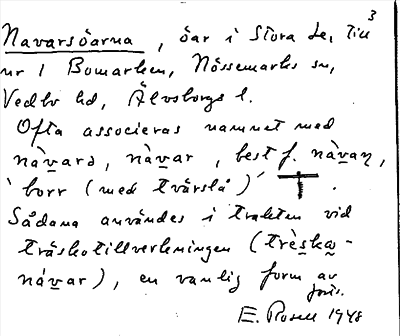 3
Navarsöarna, öar i Stora Le, till
nr 1 Bomarken, Nössemarks sn,
Vedbo hd, Älvsborgs l.
Ofta associeras namnet med
nàvarə, nàvar, best f. nàvaṇ,
'borr (med tvärslå)' .
Sådana användes i trakten vid
träskotillverkningen (trèska-
návar), en vanlig form av
E. Rosell 1948